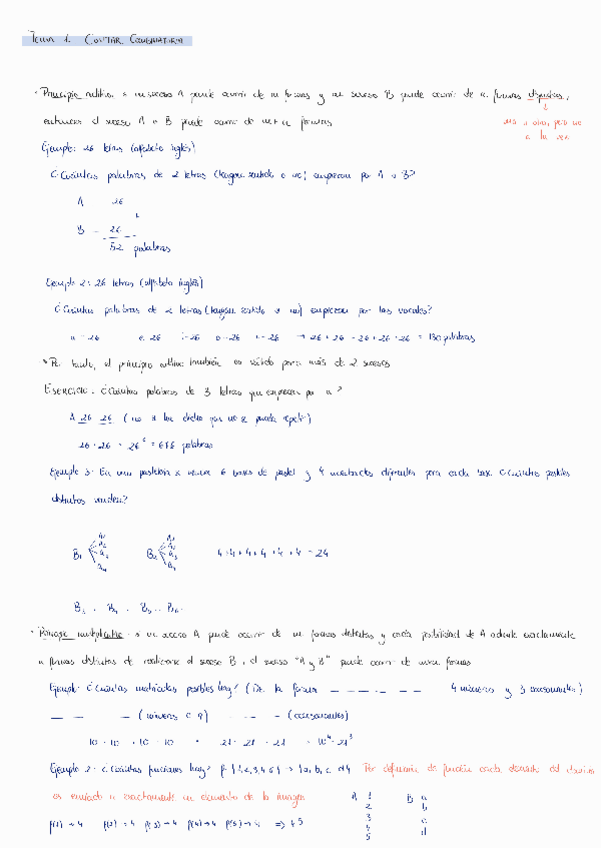 Tema 1. CONTAR. COMBINATORIA
· Principio aditivo: si un suceso A puede ocurrir de m formas y un suceso B puede ocurrir de n formas disjuntas,
entonces el suceso A o B puede ocurrir de m+n formas
una u otra, pero no
a la vez
Ejemplo: 26 letras (alfabeto inglés)
¿Cuántas palabras de 2 letras (tengan sentido o no) empiezan por A o B?
A 26
+
B - 26
52 palabras
Ejemplo 2: 26 letras (alfabeto inglés)
¿Cuántas palabras de 2 letras (tengan sentido o no) empiezan por las vocales?
a - 26 e. 26 i-26 o-26 u-26 → 26+26+26+26+26 = 130 palabras
Por tanto, el principio aditivo también es válido para más de 2 sucesos
EJERCICIO. ¿Cuántas palabras de 3 letras que empiezan por a?
A 26 26 (no se ha dicho que no se puede repetir)
26 · 26 = 26² = 676 palabras
Ejemplo 3: En una pastelería se venden 6 bases de pastel y 4 distintos para cada base. ¿Cuántos pasteles
distintos venden?
B1 B2 4+4+4+4+4+4 = 24
B3 . B4 . B5 . B6.
· Principio multiplicativo: si un suceso A puede ocurrir de m formas distintas y cada posibilidad de A admite exactamente
n formas distintas de realizarse el suceso B, el suceso "A y B" puede ocurrir de m·n formas
Ejemplo: ¿Cuántas matrículas posibles hay? (De la forma _ _ _ _ _ _ 4 números y 3 consonantes)
_ _ _ (números 0-9) _ _ _ (consonantes)
10 · 10 · 10 · 10 · 21 · 21 · 21 = 10⁴ · 21³
Ejemplo 2: ¿Cuántas funciones hay? f: {1,2,3,4,5} → {a,b,c,d} Por definición de función cada elemento del dominio
es enviado a exactamente un elemento de la imagen
A 1 B a
2 b
3 c
4 d
5
f(1) → 4 f(2) → 4 f(3) → 4 f(4) → 4 f(5) → 4 ⇒ 4⁵